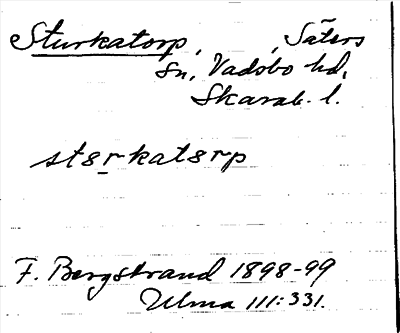 Sturkatorp, , Säters
Sn, Vadsbo hd,
Skarab. l.
st8rkat8rp
F. Bergstrand 1898-99
Ulma 111:331.